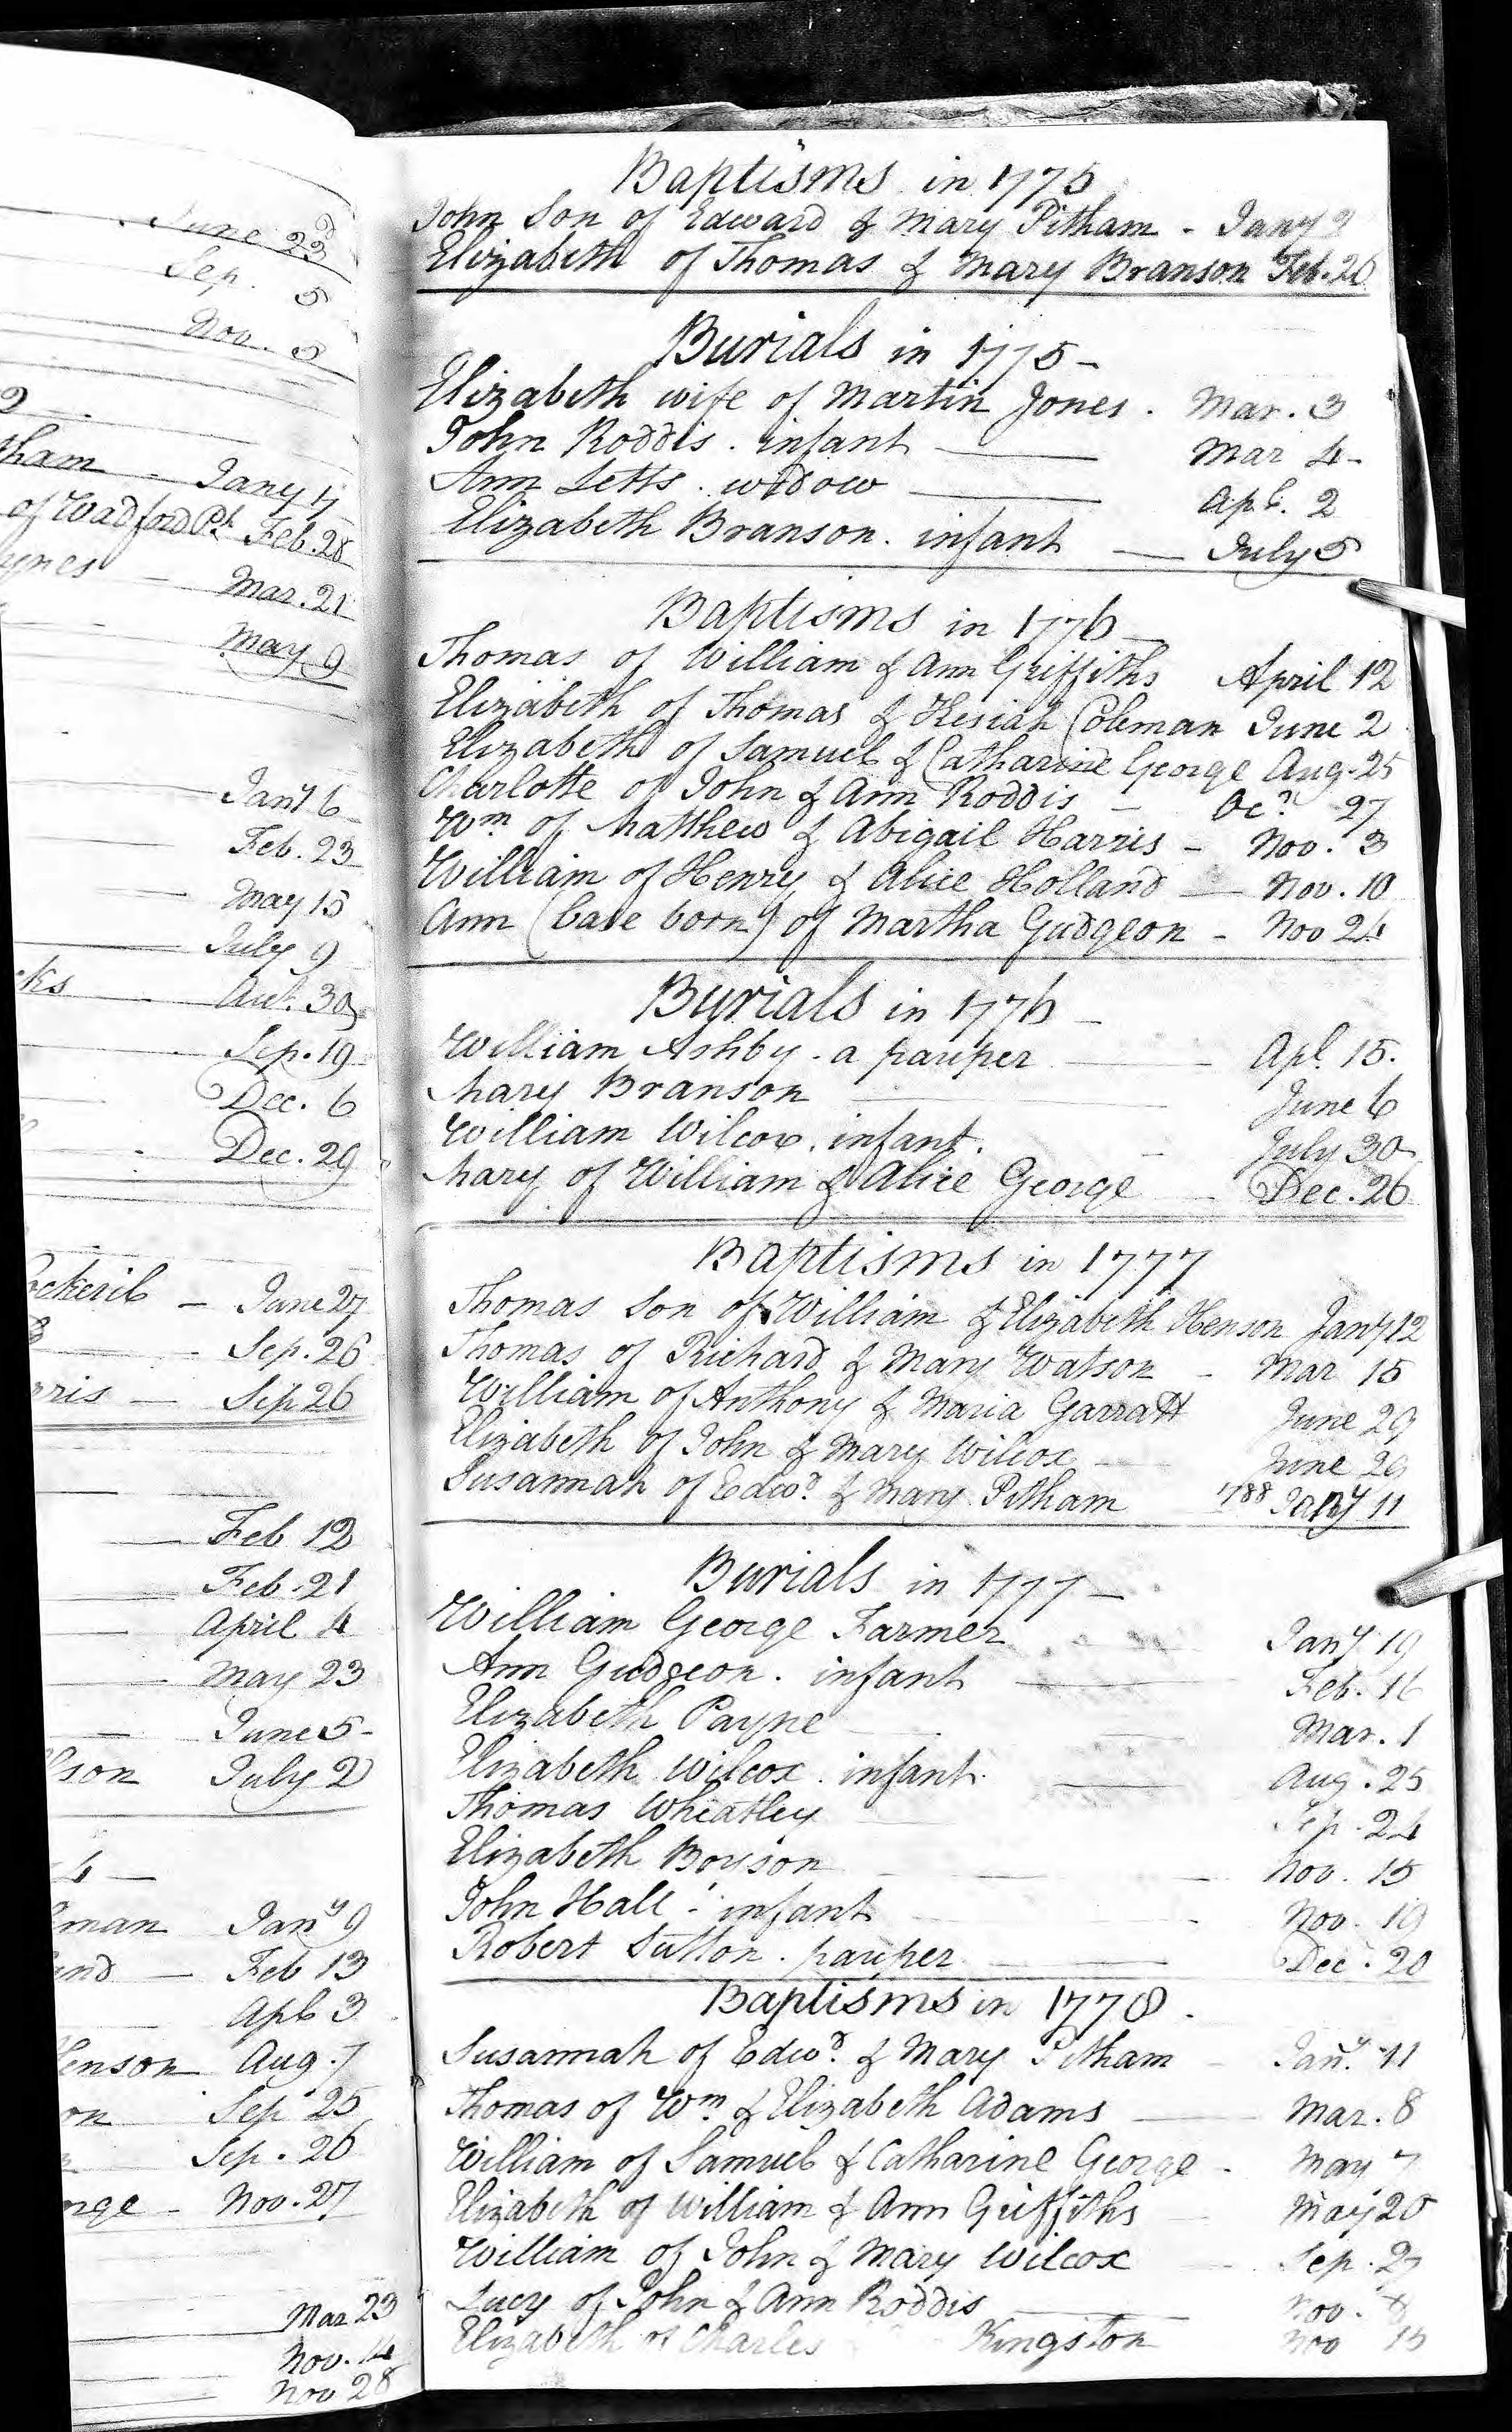 June 23d
Sep. 5
Nov. 5
9
tham - Jany 4
of Wadford Ph Feb. 28
ynes - Mar. 21
May 9
Jany 6
Feb. 23
May 15
July 9
cks Aut. 30
Sep. 19
Dec. 6
Dec. 29
ockerib - June 27
Sep. 26
rris - Sep 26
Feb 12
Feb. 21
April 4
May 23
June 5
lson July 2
4
man Jany 9
and - Feb 13
Apl 3
Henson Aug. 7
on Sep 25
Sep. 26
orge - Nov. 27
Mar 23
Nov. 14
Nov 28
Baptisms in 1775
John Son of Edward & Mary Pitham - Jany 2
Elizabeth of Thomas & Mary Branson Feb. 26
Burials in 1775 -
Elizabeth wife of Martin Jones. Mar. 3
John Roddis. infant Mar 4 -
Ann Letts. widow Apl. 2
Elizabeth Branson. infant July 5
Baptisms in 1776
Thomas of William & Ann Griffiths April 12
Elizabeth of Thomas & Kesiah Coleman June 2
Elizabeth of Samuel & Catharine George Aug. 25
Charlotte of John & Ann Roddis - Oc. 27
Wm of Matthew & Abigail Harris - Nov. 3
William of Henry & Alice Holland - Nov. 10
Ann (base born) of Martha Gudgeon - Nov 24
Burials in 1776 -
William Ashby - a pauper Apl. 15.
Mary Branson June 6
William Wilcox. infant. July 30
Mary of William & Alice George Dec. 26
Baptisms in 1777
Thomas Son of William & Elizabeth Henson Jany 12
Thomas of Richard & Mary Watson - Mar 15
William of Anthony & Maria Garratt June 29
Elizabeth of John & Mary Wilcox June 29
Susannah of Edwd. & Mary Pitham 1788 Jany 11
Burials in 1777 -
William George Farmer Jany 19
Ann Gudgeon. infant Feb. 16
Elizabeth Payne Mar. 1
Elizabeth Wilcox. infant. Aug. 25
Thomas Wheatley Sep. 24
Elizabeth Boyson Nov. 15
John Hall - infant Nov. 19
Robert Sutton. pauper Dec. 20
Baptisms in 1778.
Susannah of Edwd. & Mary Pitham Jany. 11
Thomas of Wm. & Elizabeth Adams Mar. 8
William of Samuel & Catharine George - May 7
Elizabeth of William & Ann Griffiths May 20
William of John & Mary Wilcox Sep. 27
Lucy of John & Ann Roddis Nov. 8
Elizabeth of Charles Kingston Nov 15